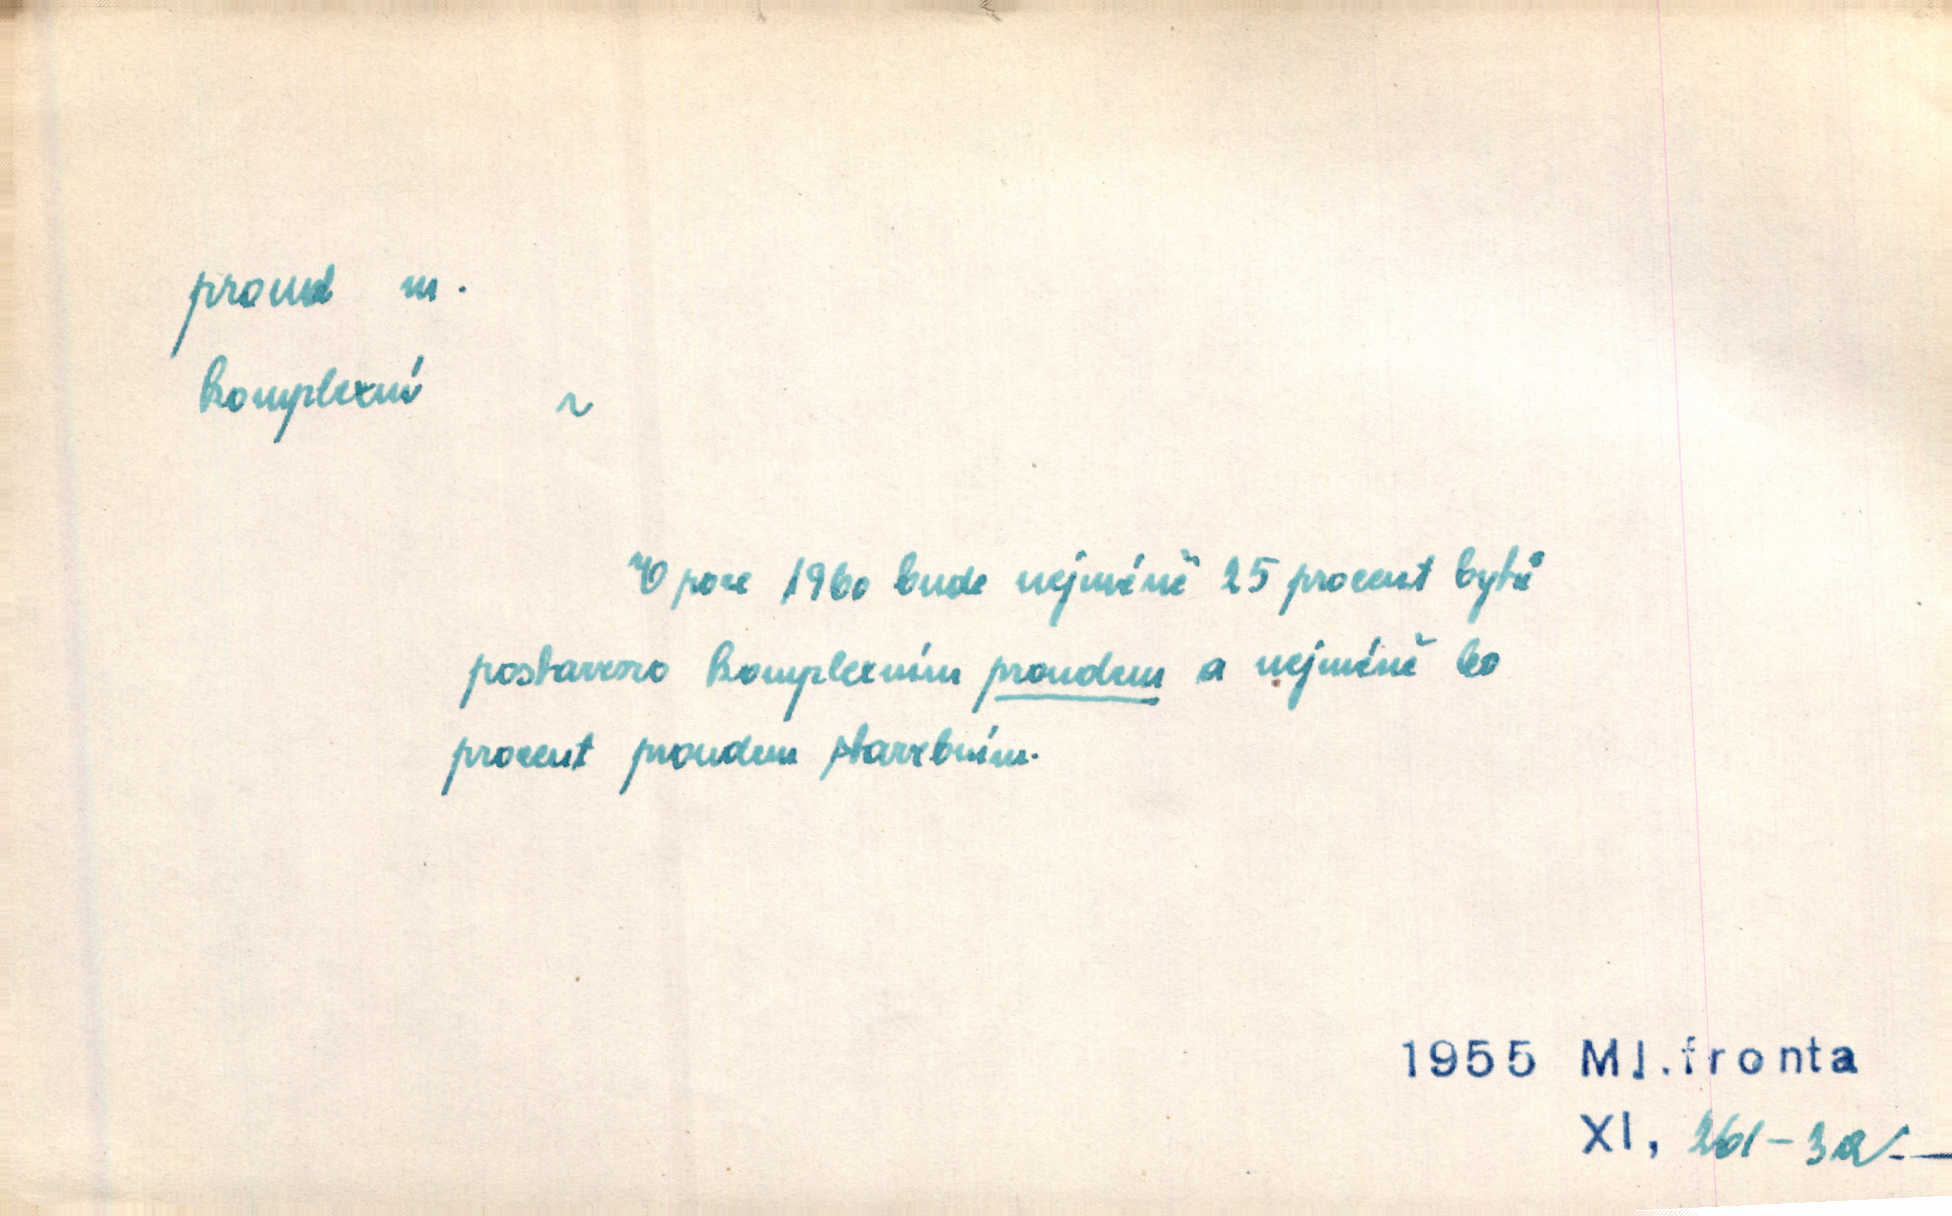 proud m.
komplexní ~
V roce 1960 bude nejméně 25 procent bytů
postaveno komplexním proudem a nejméně 60
procent proudem stavebním.
1955 Ml.fronta
XI, 261-3